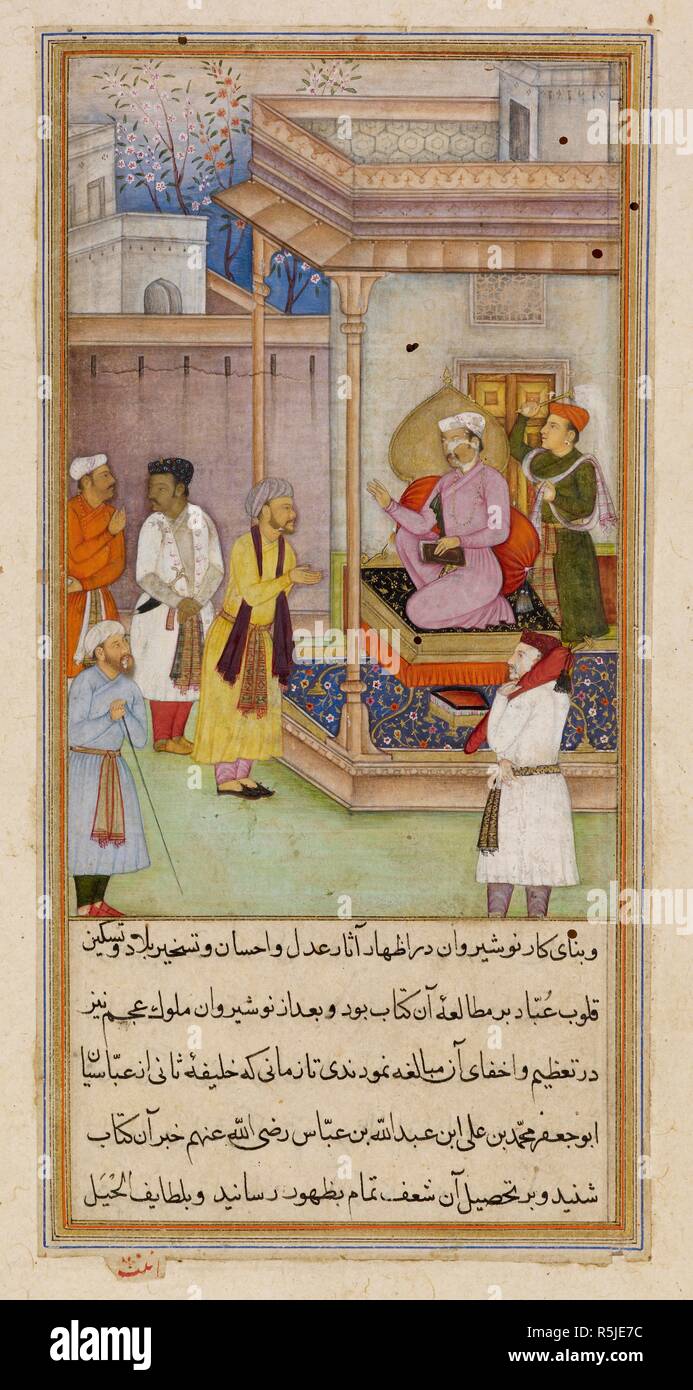 وبنای کار نوشیروان در اظهار آثار عدل و احسان و تسخیر بلاد و تسکین
قلوب عُبّاد بر مطالعهٔ آن کتاب بود و بعد از نوشیروان ملوک عجم نیز
در تعظیم و اخفای آن مبالغه نمودندی تا زمانی که خلیفهٔ ثانی از عبّاسیان
ابو جعفر محمّد بن علی ابن عبدالله بن عبّاس رضی الله عنهم خبر آن کتاب
شنید و بر تحصیل آن شعف تمام بظهور رسانید و بلطایف الحَیل
alamy
Image ID: R5JE7C
www.alamy.com